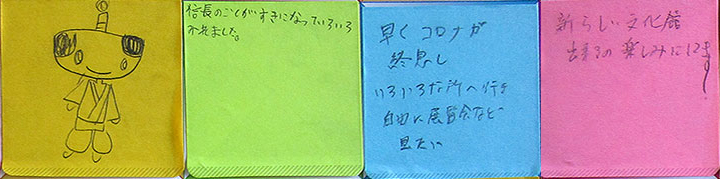 信長のことがすきになっていろいろ
かれました。
早くコロナが
終息し
いろいろな所へ行き
自由に展覧会など
見たい
新らしい文化館
出来るの楽しみにしてます